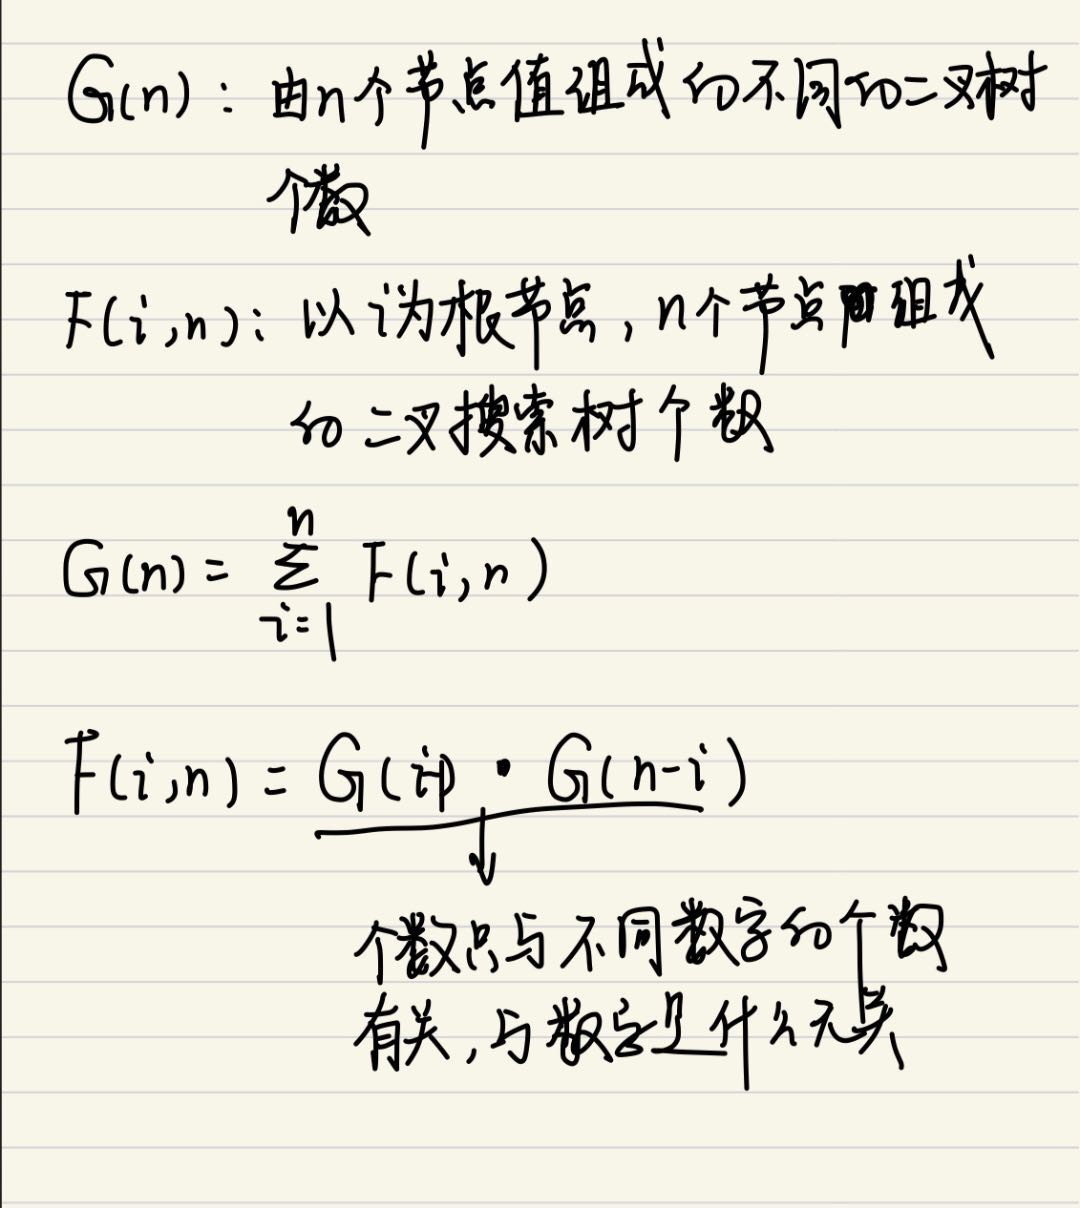 G(n): 由n个节点值组成的不同的二叉树
个数
F(i,n): 以i为根节点,n个节点组成
的二叉搜索树个数
G(n) = \sum_{i=1}^{n} F(i,n)
F(i,n) = G(i-1) · G(n-i)
个数只与不同数字的个数
有关,与数字是什么无关